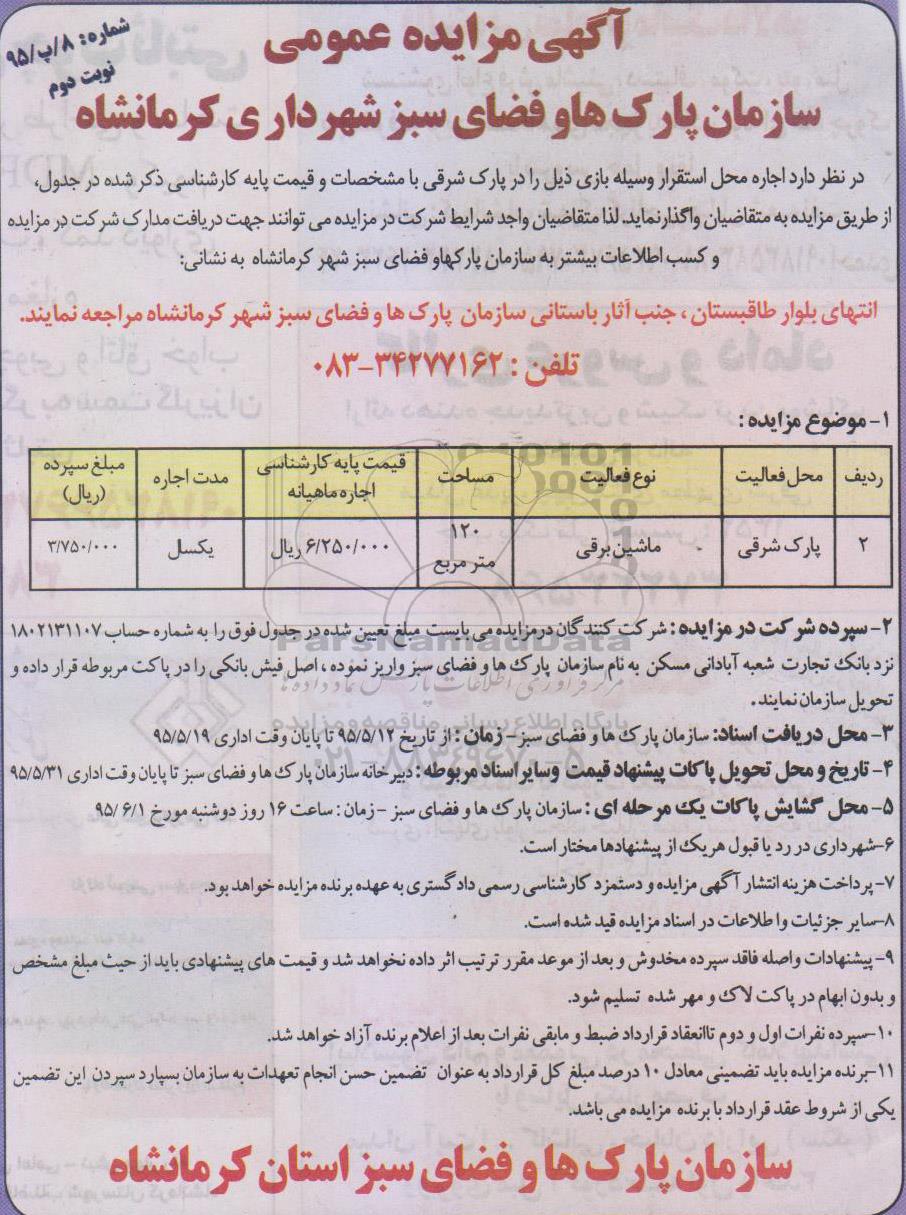 شماره: ۸/پ/۹۵
نوبت دوم
آگهی مزایده عمومی
سازمان پارک هاو فضای سبز شهرداری کرمانشاه
در نظر دارد اجاره محل استقرار وسیله بازی ذیل را در پارک شرقی با مشخصات و قیمت پایه کارشناسی ذکر شده در جدول،
از طریق مزایده به متقاضیان واگذار نماید. لذا متقاضیان واجد شرایط شرکت در مزایده می توانند جهت دریافت مدارک شرکت در مزایده
و کسب اطلاعات بیشتر به سازمان پارکهاو فضای سبز شهر کرمانشاه به نشانی:
انتهای بلوار طاقبستان ، جنب آثار باستانی سازمان پارک ها و فضای سبز شهر کرمانشاه مراجعه نمایند.
تلفن : ۳۴۲۷۷۱۶۲-۰۸۳
۱- موضوع مزایده :
ردیف محل فعالیت نوع فعالیت مساحت قیمت پایه کارشناسی اجاره ماهیانه مدت اجاره مبلغ سپرده (ریال)
۲ پارک شرقی ماشین برقی ۱۲۰ متر مربع ۶/۲۵۰/۰۰۰ ریال یکسال ۳/۷۵۰/۰۰۰
۲- سپرده شرکت در مزایده : شرکت کنندگان درمزایده می بایست مبلغ تعیین شده در جدول فوق را به شماره حساب ۱۸۰۲۱۳۱۱۰۷
نزد بانک تجارت شعبه آبادانی مسکن به نام سازمان پارک ها و فضای سبز واریز نموده ، اصل فیش بانکی را در پاکت مربوطه قرار داده و
تحویل سازمان نمایند .
۳- محل دریافت اسناد: سازمان پارک ها و فضای سبز – زمان : از تاریخ ۹۵/۵/۱۲ تا پایان وقت اداری ۹۵/۵/۱۹
۴- تاریخ و محل تحویل پاکات پیشنهاد قیمت وسایر اسناد مربوطه : دبیرخانه سازمان پارک ها و فضای سبز تا پایان وقت اداری ۹۵/۵/۳۱
۵- محل گشایش پاکات یک مرحله ای : سازمان پارک ها و فضای سبز – زمان : ساعت ۱۶ روز دوشنبه مورخ ۹۵/۶/۱
۶- شهرداری در رد یا قبول هریک از پیشنهادها مختار است.
۷- پرداخت هزینه انتشار آگهی مزایده و دستمزد کارشناسی رسمی دادگستری به عهده برنده مزایده خواهد بود.
۸- سایر جزئیات واطلاعات در اسناد مزایده قید شده است.
۹- پیشنهادات واصله فاقد سپرده مخدوش و بعد از موعد مقرر ترتیب اثر داده نخواهد شد و قیمت های پیشنهادی باید از حیث مبلغ مشخص
و بدون ابهام در پاکت لاک و مهر شده تسلیم شود.
۱۰- سپرده نفرات اول و دوم تاانعقاد قرارداد ضبط و مابقی نفرات بعد از اعلام برنده آزاد خواهد شد.
۱۱- برنده مزایده باید تضمینی معادل ۱۰ درصد مبلغ کل قرارداد به عنوان تضمین حسن انجام تعهدات به سازمان بسپارد سپردن این تضمین
یکی از شروط عقد قرارداد با برنده مزایده می باشد.
سازمان پارک ها و فضای سبز استان کرمانشاه
ParsNamadData
مرکز فرآوری اطلاعات پارس نماد داده ها
پایگاه اطلاع رسانی مناقصه و مزایده